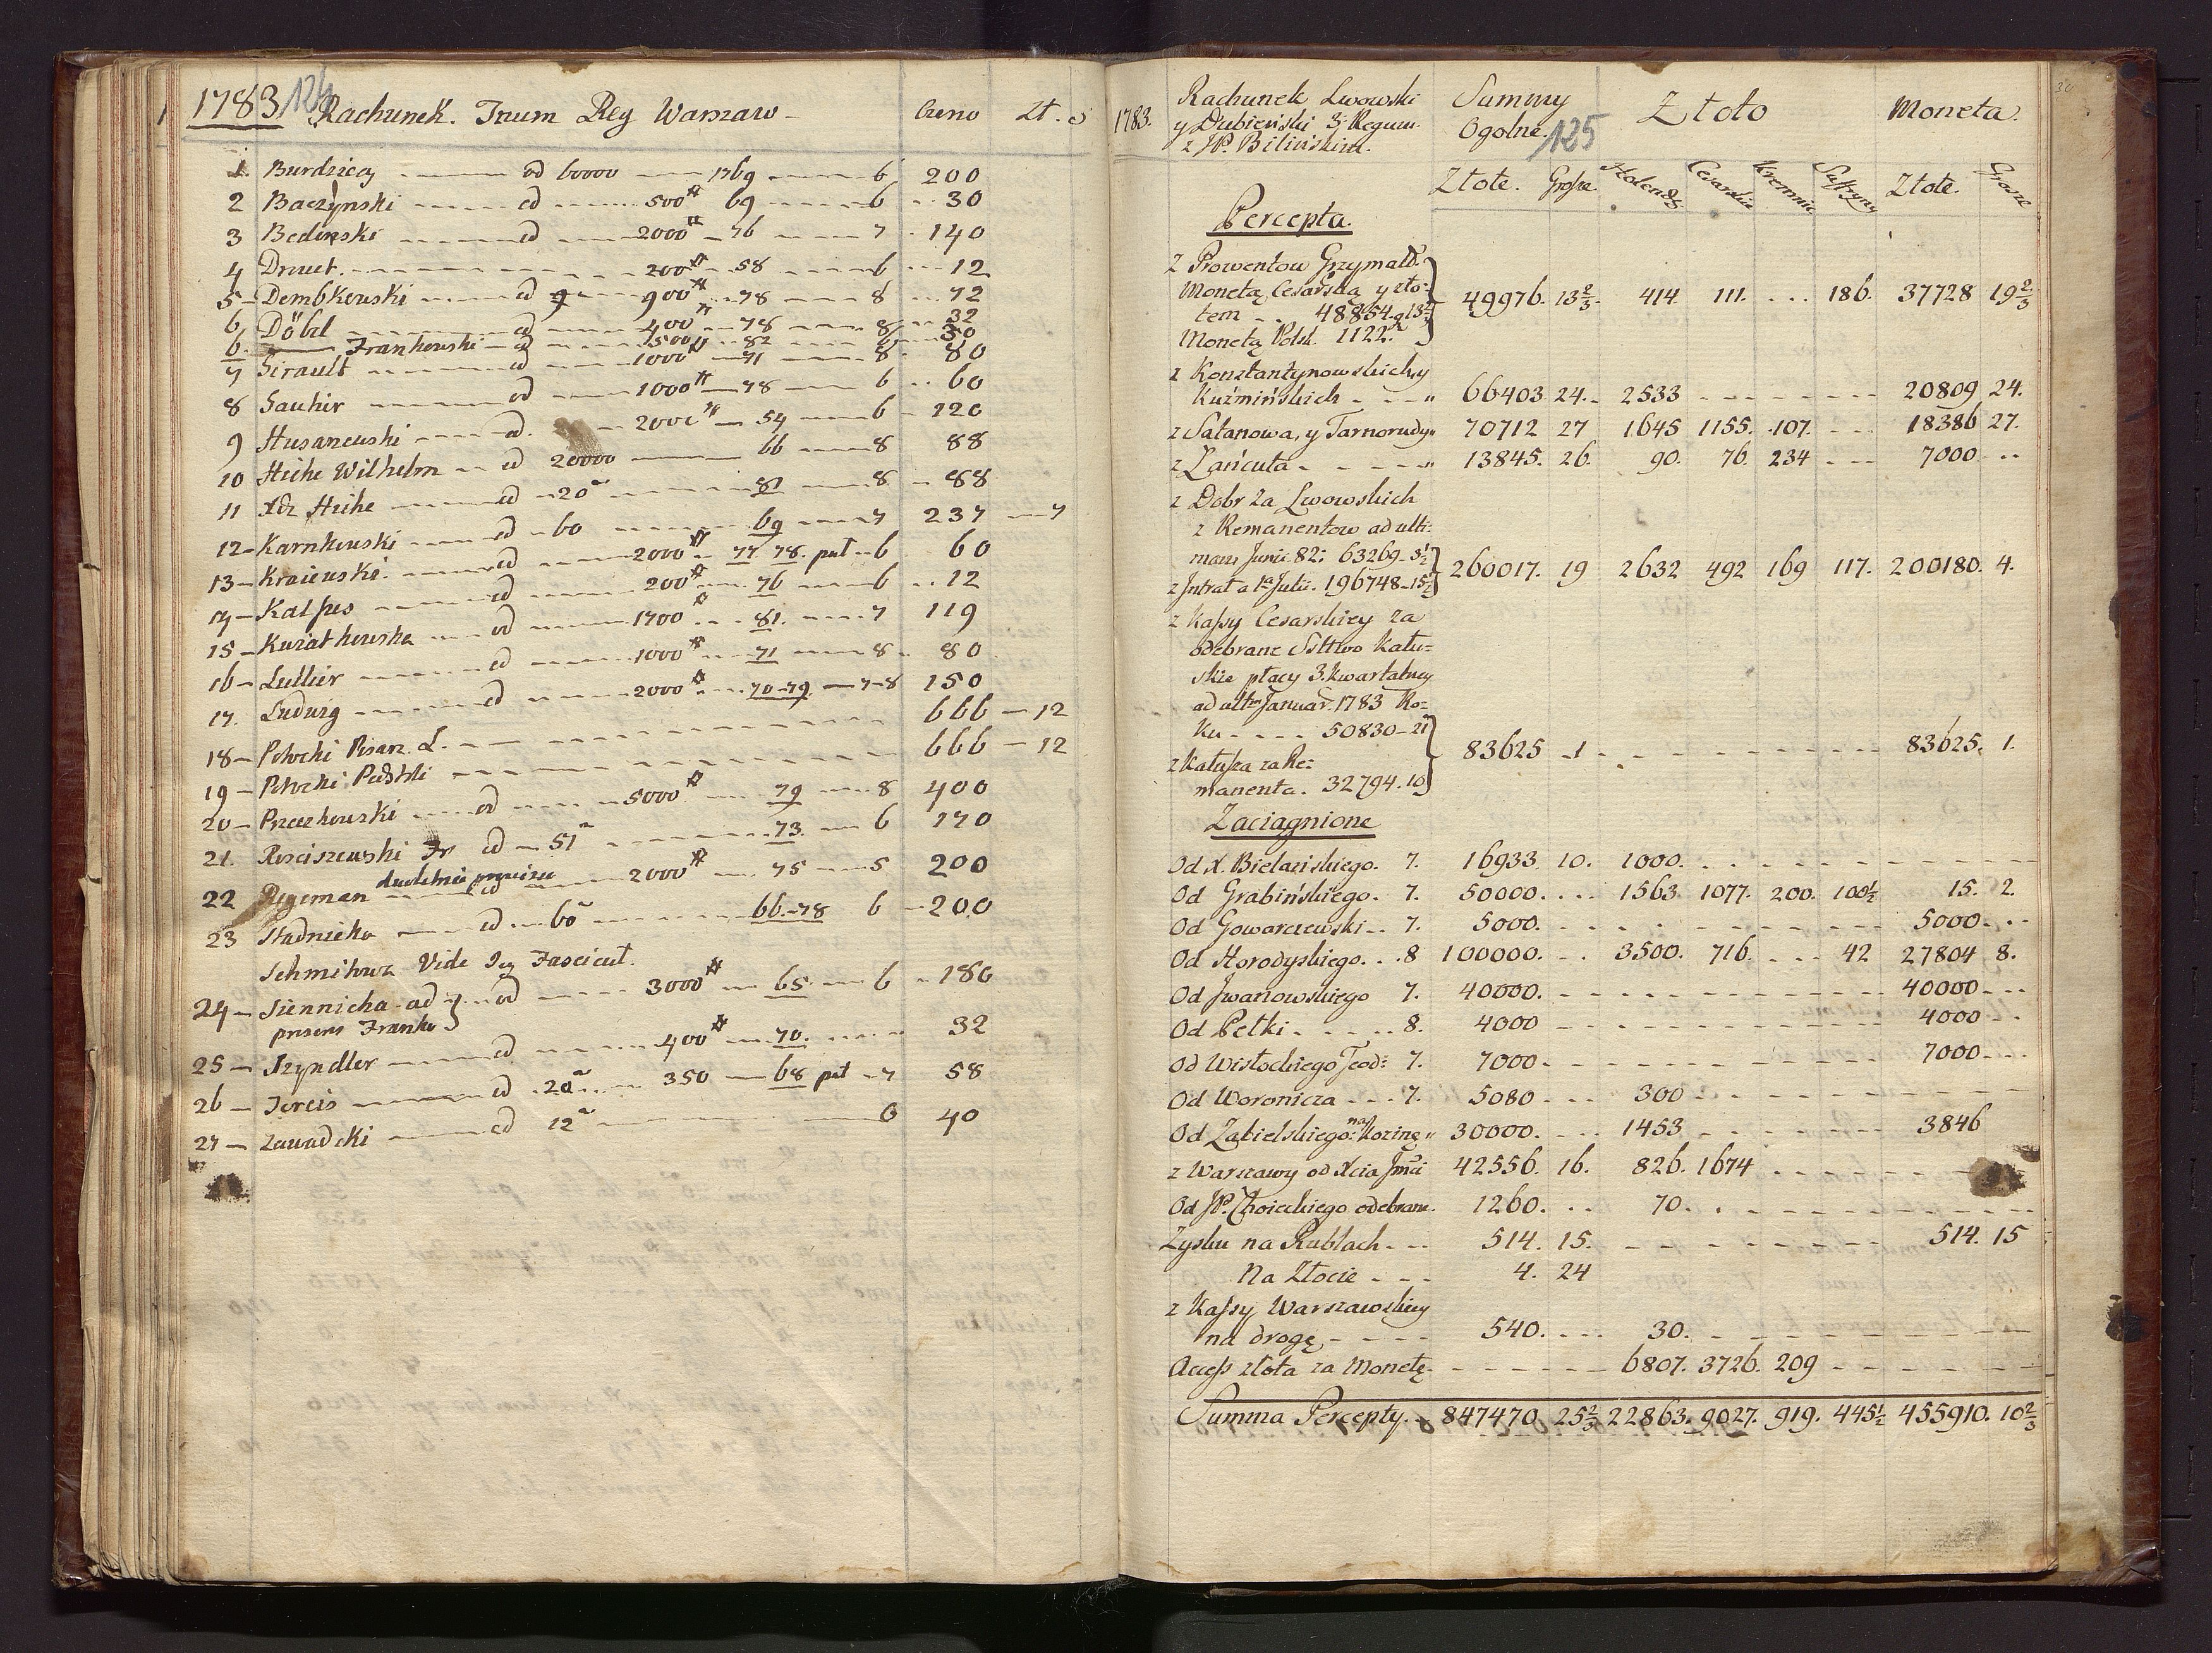 1783 124 Rachunek. Jnnm Rey Warszaw Czeno Zt.
1. Burdzicy od 60000 1769 6 200
2 Baczynski od 500# 69 6 30
3 Bedinski od 2000# 76 7 140
4 Druet. 200# 58 6 12
5 Dembkowski od 900# 78 8 72
6 Döbel od 400# 78 8 32
6. Frankowski od 500# 82 6 30
7 Girault od 1000# 71 8 80
8 Gautier od 1000# 78 6 60
9 Husarzewski od 2000# 54 6 120
10 Heihe Wilhelm od 20000 66 8 88
11 Xdz Heihe od 20 81 8 88
12 Karnkowski od 60 69 7 237 7
13 Kraiewski od 2000# 77 78 put 6 60
14 Kalfus od 200# 76 6 12
15 Kwiatkowska od 1700 81. 7 119
16 Lullier od 1000# 71 8 80
17. Ludwig od 2000# 70-79 7-8 150
18 Potocki Pisarz L. 666 12
19 Potocki Podstoli 666 12
20 Przerhowski od 5000# 79 8 400
21. Rosciszewski Fr od 51 73. 6 170
22 Regeman od 2000# 75 5 200
23 Stadnicka od 60 66.-78 6 200
Schmihowa Vide Jey Fascicul.
24 Siennicka ad od 3000# 65 6 180
Franko
25 Szyndler od 400# 70. 32
26 Jercis od 20 350 68 put 7 58
27 Zawadcki od 12 6 40
1783. Rachunek Lwowski
y Dubieński
z JP. Bilinskim.
Summy Ogolne. 125 Złoto Moneta.
Złote. Grosze. Holendr. Cesarskie Kremnic. Suffryny Złote. Grosze
Percepta.
z Prowentow Grzymałł.
Monetą Cesarską y zło=
tem 48854.g 13⅔ 49976. 13⅔. 414 111. 186. 37728 19⅔
Monetą Polsk. 1122.
z Konstantynowskich, y
Kuźmińskich 66403 24. 2533 20809 24.
z Satanowa, y Tarnorudy 70712 27 1645 1155. 107. 18386 27.
z Łańcuta 13845. 26. 90. 76. 234 7000
z Dobr Za Lwowskich
z Remanentow ad ulti=
mam Junii 82: 63269 3½
z Jntrat a 1a Julii. 196748-15½ 260017. 19 2632 492 169 117. 200180. 4.
z Kassy Cesarskiey za
odebrane Sttwo Kału=
skie płacy 3. kwartalney
ad ult. Januar. 1783 Ro=
ku 50830-21
83625 1 83625. 1.
z Kałusza za Re=
manenta. 32794. 10
Zaciągnione
Od X. Bielanskiego. 7. 16933 10. 1000.
Od Grabińskiego. 7. 50000. 1563 1077. 200. 100½ 15. 2.
Od Gowarczewski 7. 5000. 5000.
Od Horodyskiego. 8 100000. 3500. 716. 42 27804 8.
Od Jwanowskiego 7. 40000. 40000
Od Pełki 8. 4000 4000
Od Wisłockiego Teod: 7. 7000. 7000
Od Woronicza 7. 5080 300
Od Zabielskiego na Kozinę 30000. 1453 3846
z Warszawy od Xcia Jmci 42556. 16. 826. 1674
Od JP. Choieckiego odebrane. 1260. 70.
Zysku na Rublach 514. 15. 514. 15
Na Złocie 4. 24
z Kassy Warszawskiey
na drogę 540. 30.
Access złota za Monetę 6807. 3726. 209
Summa Percepty. 847470 25⅔ 22863. 9027. 919. 445½ 455910. 10⅔